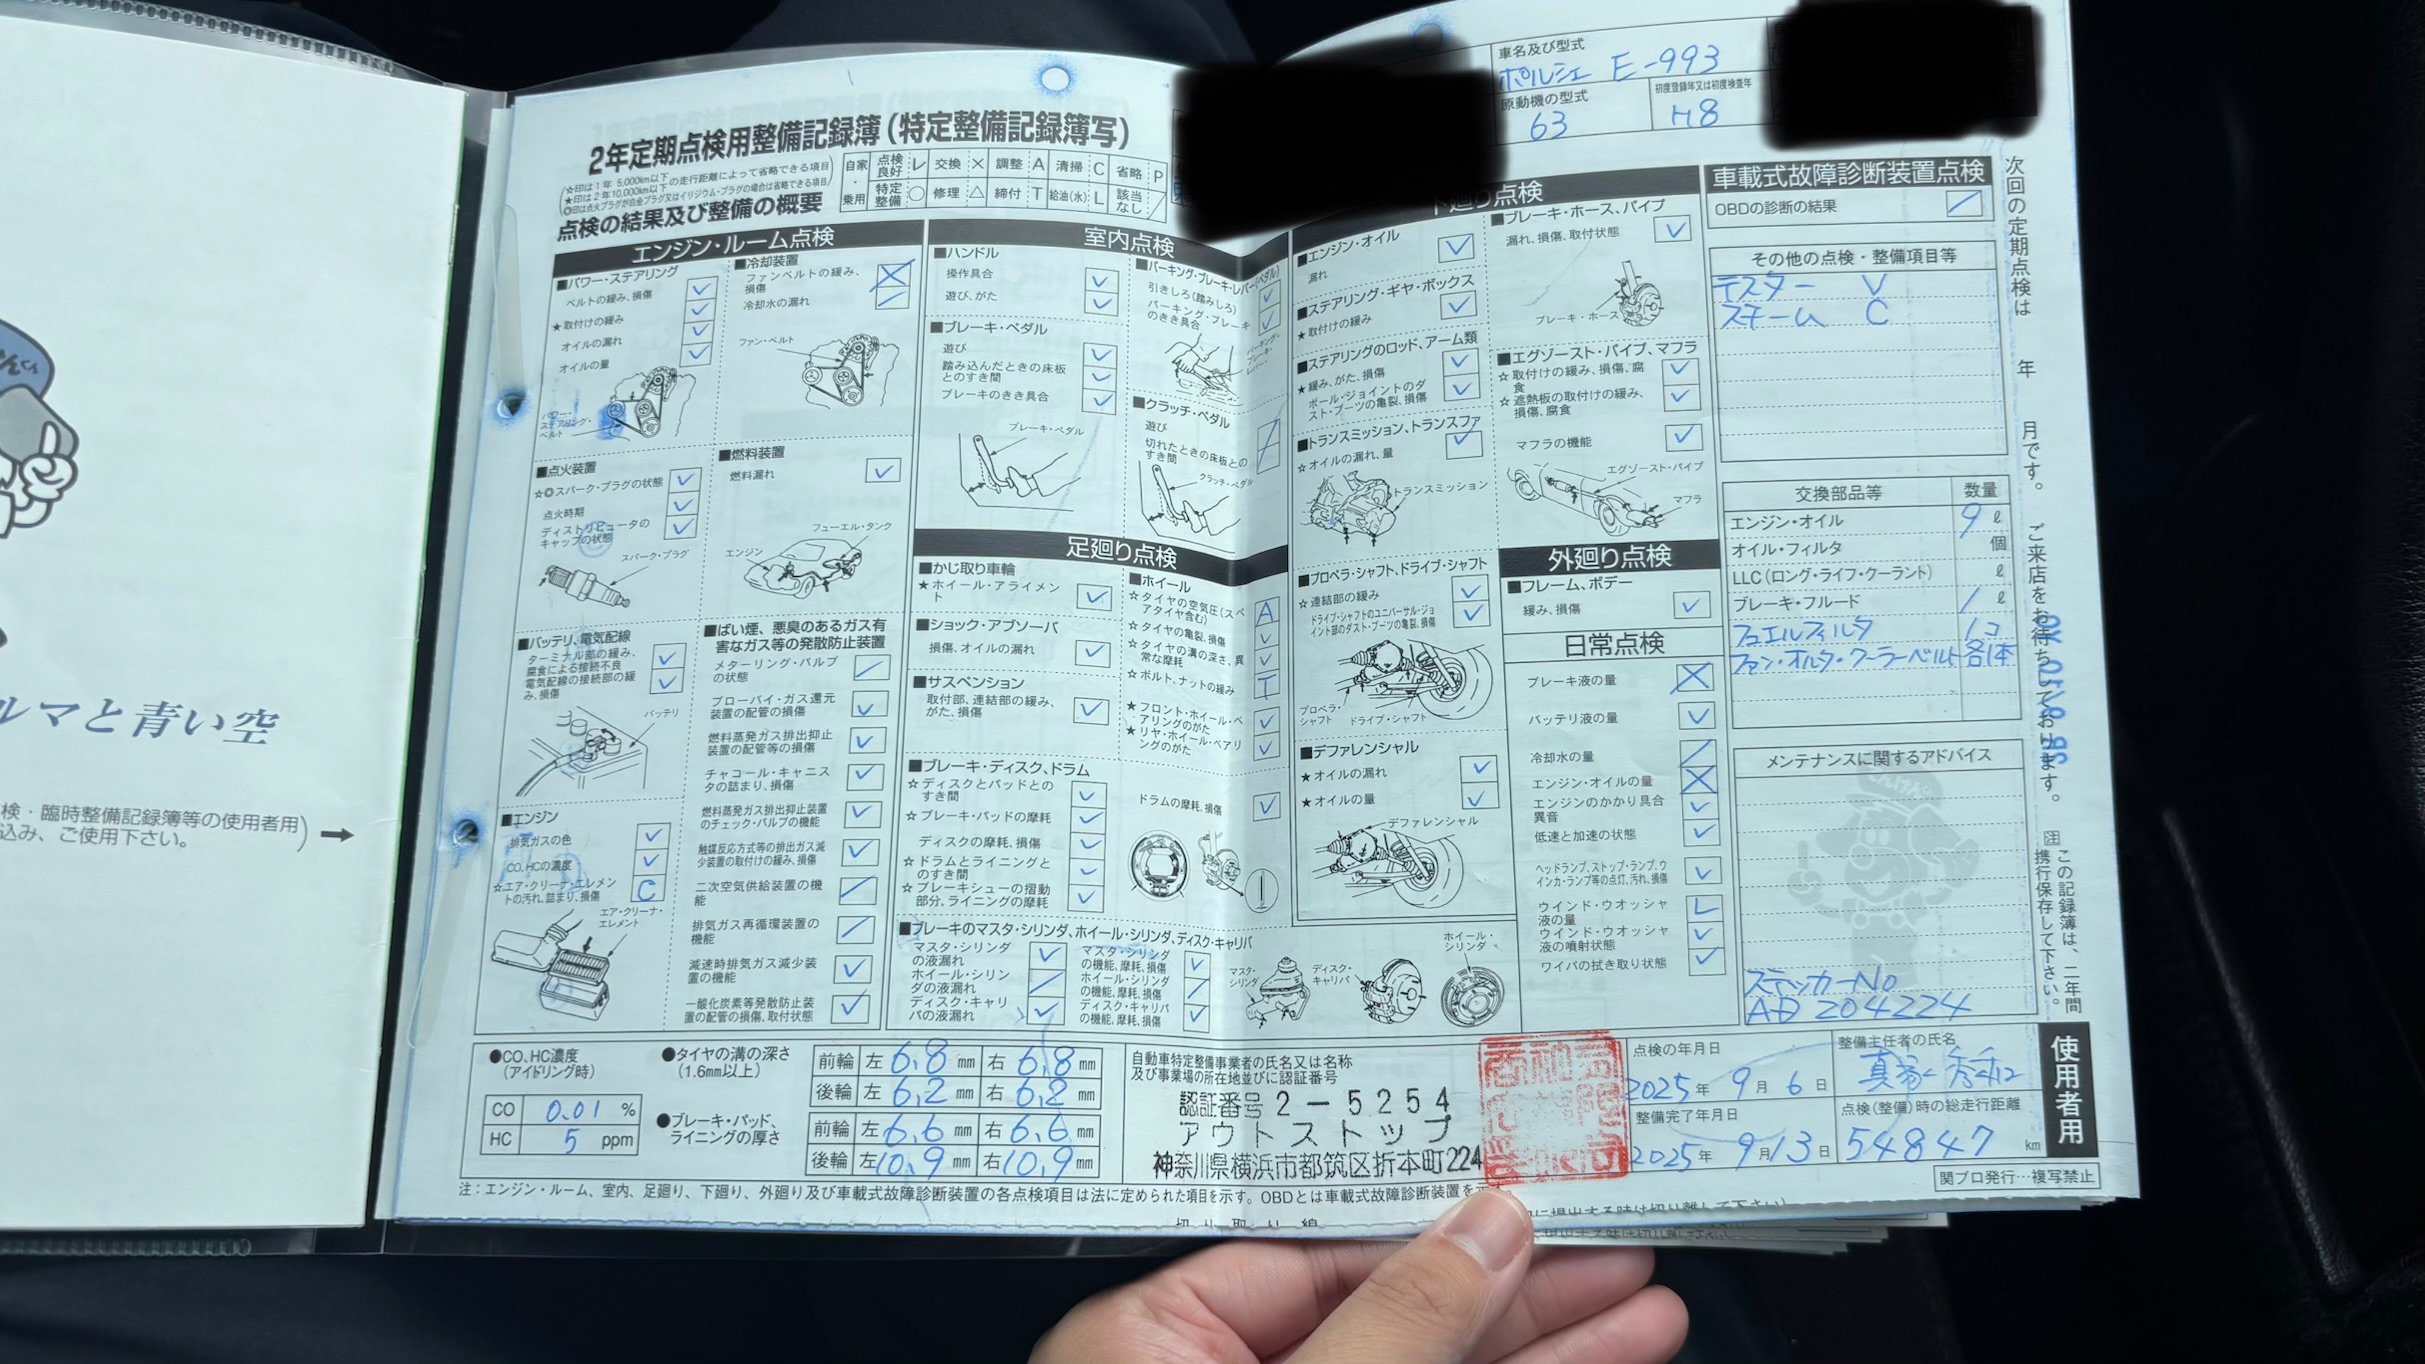 ルマと青い空
検・臨時整備記録簿等の使用者用
込み、ご使用下さい。
2年定期点検用整備記録簿(特定整備記録簿写)
☆印は1年 5,000km以下の走行距離によって省略できる項目
★印は2年10,000km以下の走行距離によって省略できる項目
◎印は点火プラグが白金プラグ又はイリジウム・プラグの場合は省略できる項目
自家・乗用
点検良好 レ 交換 × 調整 A 清掃 C 省略 P
特定整備 ○ 修理 △ 締付 T 給油(水) L 該当なし /
車名及び型式
ポルシェ E-993
原動機の型式
63
初度登録年又は初度検査年
H8
点検の結果及び整備の概要
エンジン・ルーム点検
■パワー・ステアリング
ベルトの緩み、損傷 レ
★取付けの緩み レ
オイルの漏れ レ
オイルの量 レ
パワー・ステアリング・ベルト
■冷却装置
ファンベルトの緩み、損傷 ×
冷却水の漏れ /
ファン・ベルト
■点火装置
☆◎スパーク・プラグの状態 レ
点火時期 レ
ディストリビュータのキャップの状態 レ
スパーク・プラグ
■燃料装置
燃料漏れ レ
フューエル・タンク
エンジン
■バッテリ、電気配線
ターミナル部の緩み、腐食による接続不良 レ
電気配線の接続部の緩み、損傷 レ
バッテリ
■エンジン
排気ガスの色 レ
CO、HCの濃度 レ
☆エア・クリーナ・エレメントの汚れ、詰まり、損傷 C
エア・クリーナ・エレメント
■ばい煙、悪臭のあるガス有害なガス等の発散防止装置
メターリング・バルブの状態 /
ブローバイ・ガス還元装置の配管の損傷 レ
燃料蒸発ガス排出抑止装置の配管等の損傷 レ
チャコール・キャニスタの詰まり、損傷 レ
燃料蒸発ガス排出抑止装置のチェック・バルブの機能 レ
触媒反応方式等の排出ガス減少装置の取付けの緩み、損傷 レ
二次空気供給装置の機能 /
排気ガス再循環装置の機能 /
減速時排気ガス減少装置の機能 レ
一酸化炭素等発散防止装置の配管の損傷、取付状態 レ
室内点検
■ハンドル
操作具合 レ
遊び、がた レ
■ブレーキ・ペダル
遊び レ
踏み込んだときの床板とのすき間 レ
ブレーキのきき具合 レ
ブレーキ・ペダル
■パーキング・ブレーキ・レバー(ペダル)
引きしろ(踏みしろ) レ
パーキング・ブレーキのきき具合 レ
■クラッチ・ペダル
遊び
切れたときの床板とのすき間
クラッチ・ペダル
足廻り点検
■かじ取り車輪
★ホイール・アライメント レ
■ショック・アブソーバ
損傷、オイルの漏れ レ
■サスペンション
取付部、連結部の緩み、がた、損傷 レ
■ホイール
☆タイヤの空気圧(スペアタイヤ含む) A
☆タイヤの亀裂、損傷 レ
☆タイヤの溝の深さ、異常な摩耗 レ
☆ボルト、ナットの緩み T
★フロント・ホイール・ベアリングのがた レ
★リヤ・ホイール・ベアリングのがた レ
■ブレーキ・ディスク、ドラム
☆ディスクとパッドとのすき間 レ
☆ブレーキ・パッドの摩耗 レ
ディスクの摩耗、損傷 レ
☆ドラムとライニングとのすき間 レ
☆ブレーキシューの摺動部分、ライニングの摩耗 レ
ドラムの摩耗、損傷 レ
■ブレーキのマスタ・シリンダ、ホイール・シリンダ、ディスク・キャリパ
マスタ・シリンダの液漏れ レ
ホイール・シリンダの液漏れ /
ディスク・キャリパの液漏れ レ
マスタ・シリンダの機能、摩耗、損傷 レ
ホイール・シリンダの機能、摩耗、損傷 /
ディスク・キャリパの機能、摩耗、損傷 レ
マスタ・シリンダ
ディスク・キャリパ
ホイール・シリンダ
下廻り点検
■エンジン・オイル
漏れ レ
■ステアリング・ギヤ・ボックス
★取付けの緩み レ
■ステアリングのロッド、アーム類
★緩み、がた、損傷 レ
ボール・ジョイントのダスト・ブーツの亀裂、損傷 レ
■トランスミッション、トランスファ
☆オイルの漏れ、量 レ
トランスミッション
■プロペラ・シャフト、ドライブ・シャフト
☆連結部の緩み レ
ドライブ・シャフトのユニバーサル・ジョイント部のダスト・ブーツの亀裂、損傷 レ
プロペラ・シャフト
ドライブ・シャフト
■デファレンシャル
★オイルの漏れ レ
★オイルの量 レ
デファレンシャル
■ブレーキ・ホース、パイプ
漏れ、損傷、取付状態 レ
ブレーキ・ホース
■エグゾースト・パイプ、マフラ
☆取付けの緩み、損傷、腐食 レ
☆遮熱板の取付けの緩み、損傷、腐食 レ
マフラの機能 レ
エグゾースト・パイプ
マフラ
外廻り点検
■フレーム、ボデー
緩み、損傷 レ
日常点検
ブレーキ液の量 ×
バッテリ液の量 レ
冷却水の量 /
エンジン・オイルの量 ×
エンジンのかかり具合異音 レ
低速と加速の状態 レ
ヘッドランプ、ストップ・ランプ、ウインカ・ランプ等の点灯、汚れ、損傷 レ
ウインド・ウオッシャ液の量 L
ウインド・ウオッシャ液の噴射状態 レ
ワイパの拭き取り状態 レ
車載式故障診断装置点検
OBDの診断の結果 /
その他の点検・整備項目等
テスター V
スチーム C
交換部品等 数量
エンジン・オイル 9 ℓ
オイル・フィルタ 個
LLC(ロング・ライフ・クーラント) ℓ
ブレーキ・フルード 1 ℓ
フュエルフィルタ 1コ
ファン・オルタ・クーラーベルト 各1本
メンテナンスに関するアドバイス
ステッカーNo
AD 204224
次回の定期点検は 年 月です。ご来店をお待ちしております。
注 この記録簿は、二年間携行保存して下さい。
●CO、HC濃度(アイドリング時)
CO 0.01 %
HC 5 ppm
●タイヤの溝の深さ(1.6mm以上)
前輪 左 6.8 mm 右 6.8 mm
後輪 左 6.2 mm 右 6.2 mm
●ブレーキ・パッド、ライニングの厚さ
前輪 左 6.6 mm 右 6.6 mm
後輪 左 10.9 mm 右 10.9 mm
自動車特定整備事業者の氏名又は名称及び事業場の所在地並びに認証番号
認証番号 2-5254
アウトストップ
神奈川県横浜市都筑区折本町224
点検の年月日
2025年 9月 6日
整備完了年月日
2025年 9月13日
整備主任者の氏名
点検(整備)時の総走行距離
54847 km
使用者用
注:エンジン・ルーム、室内、足廻り、下廻り、外廻り及び車載式故障診断装置の各点検項目は法に定められた項目を示す。OBDとは車載式故障診断装置を示す。
関プロ発行…複写禁止
切り取り線